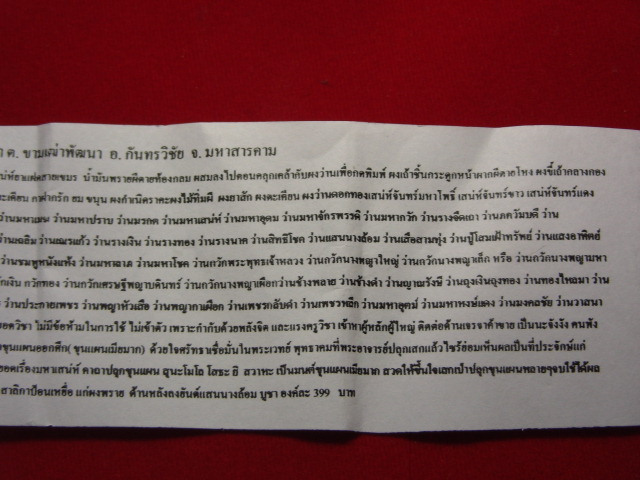 ต. ขามเฒ่าพัฒนา อ. กันทรวิชัย จ. มหาสารคาม
น้ำมันพรายผีตายท้องกลม ผสมลงไปตอนคลุกเคล้ากับผงว่านเพื่อกดพิมพ์ ผงเถ้าชิ้นกระดูกหน้าผากผีตายโหง ผงขี้เถ้ากลางกอง
กาฝากรัก ยม ขนุน ผงกำเนิดราคะผงไม้ทิ่มผี ผงยาสัก ผงตะเคียน ผงว่านดอกทองเสน่ห์จันทร์มหาโพธิ์ เสน่ห์จันทร์ขาว เสน่ห์จันทร์แดง
ว่านมหาเมฆ ว่านมหาปราบ ว่านมรกต ว่านมหาเสน่ห์ ว่านมหาอุดม ว่านมหาจักรพรรดิ ว่านมหากวัก ว่านรางจืดเถา ว่านภควัมบดี ว่าน
ว่านเฉลิม ว่านเณรแก้ว ว่านรางเงิน ว่านรางทอง ว่านรางนาค ว่านสิทธิโชค ว่านแสนนางล้อม ว่านเสือสามทุ่ง ว่านปู่โสมเฝ้าทรัพย์ ว่านแสงอาทิตย์
ว่านชมพูหนังแห้ง ว่านมหาลาภ ว่านมหาโชค ว่านกวักพระพุทธเจ้าหลวง ว่านกวักนางพญาใหญ่ ว่านกวักนางพญาเล็ก หรือ ว่านกวักนางพญามหา
กวักเงิน กวักทอง ว่านกวักเศรษฐีพญาบดินทร์ ว่านกวักนางพญาเผือกว่านช้างพลาย ว่านช้างดำ ว่านญาณรังษี ว่านถุงเงินถุงทอง ว่านทองไหลมา ว่าน
ว่านประกายเพชร ว่านพญาหัวเสือ ว่านพญากาเผือก ว่านเพชรกลับดำ ว่านเพชรหลีก ว่านมหาอุตม์ ว่านมหาหงษ์แดง ว่านมงคลชัย ว่านวาสนา
ไม่มีข้อห้ามในการใช้ ไม่เข้าตัว เพราะกำกับด้วยพลังจิต และแรงครูวิชา เข้าหาผู้หลักผู้ใหญ่ ติดต่อค้านเจรจาค้าขาย เป็นนะจังงัง คนฟัง
ขุนแผนออกศึก( ขุนแผนเมียมาก) ด้วยใจศรัทธาเชื่อมั่นในพระเวทย์ พุทธาคมที่พระอาจารย์ปลุกเสกแล้วไซร้ย่อมเห็นผลเป็นที่ประจักษ์แก่
ยอดเรื่องมหาเสน่ห์ คาถาปลุกขุนแผน สุนะโมโล โสธะ อิ สวาหะ เป็นมนต์ขุนแผนเมียมาก สวดให้ขึ้นใจเสกเป่าปลุกขุนแผนหลายๆจบใช้ได้ผล
สาลิกาป้อนเหยื่อ แก่ผงพราย ด้านหลังลงยันต์แสนนางล้อม บูชา องค์ละ 399 บาท